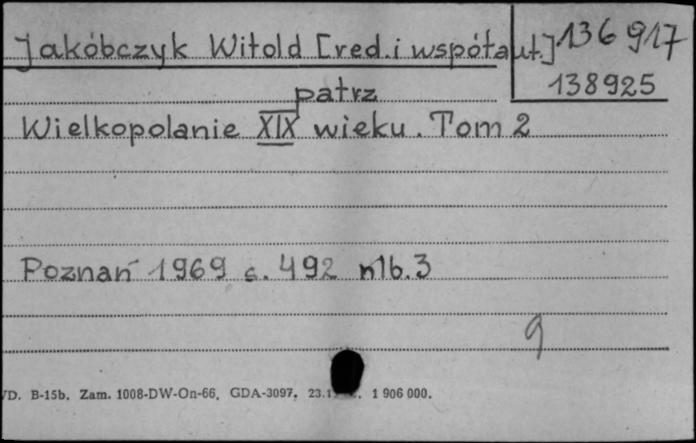 Jakóbczyk Witold [red. i współaut.] 136 917
138925
patrz
Wielkopolanie XIX wieku. Tom 2
Poznań 1969 s. 492 nlb. 3
9
D. B-15b. Zam. 1008-DW-On-66. GDA-3097. 23.1 1 906 000.